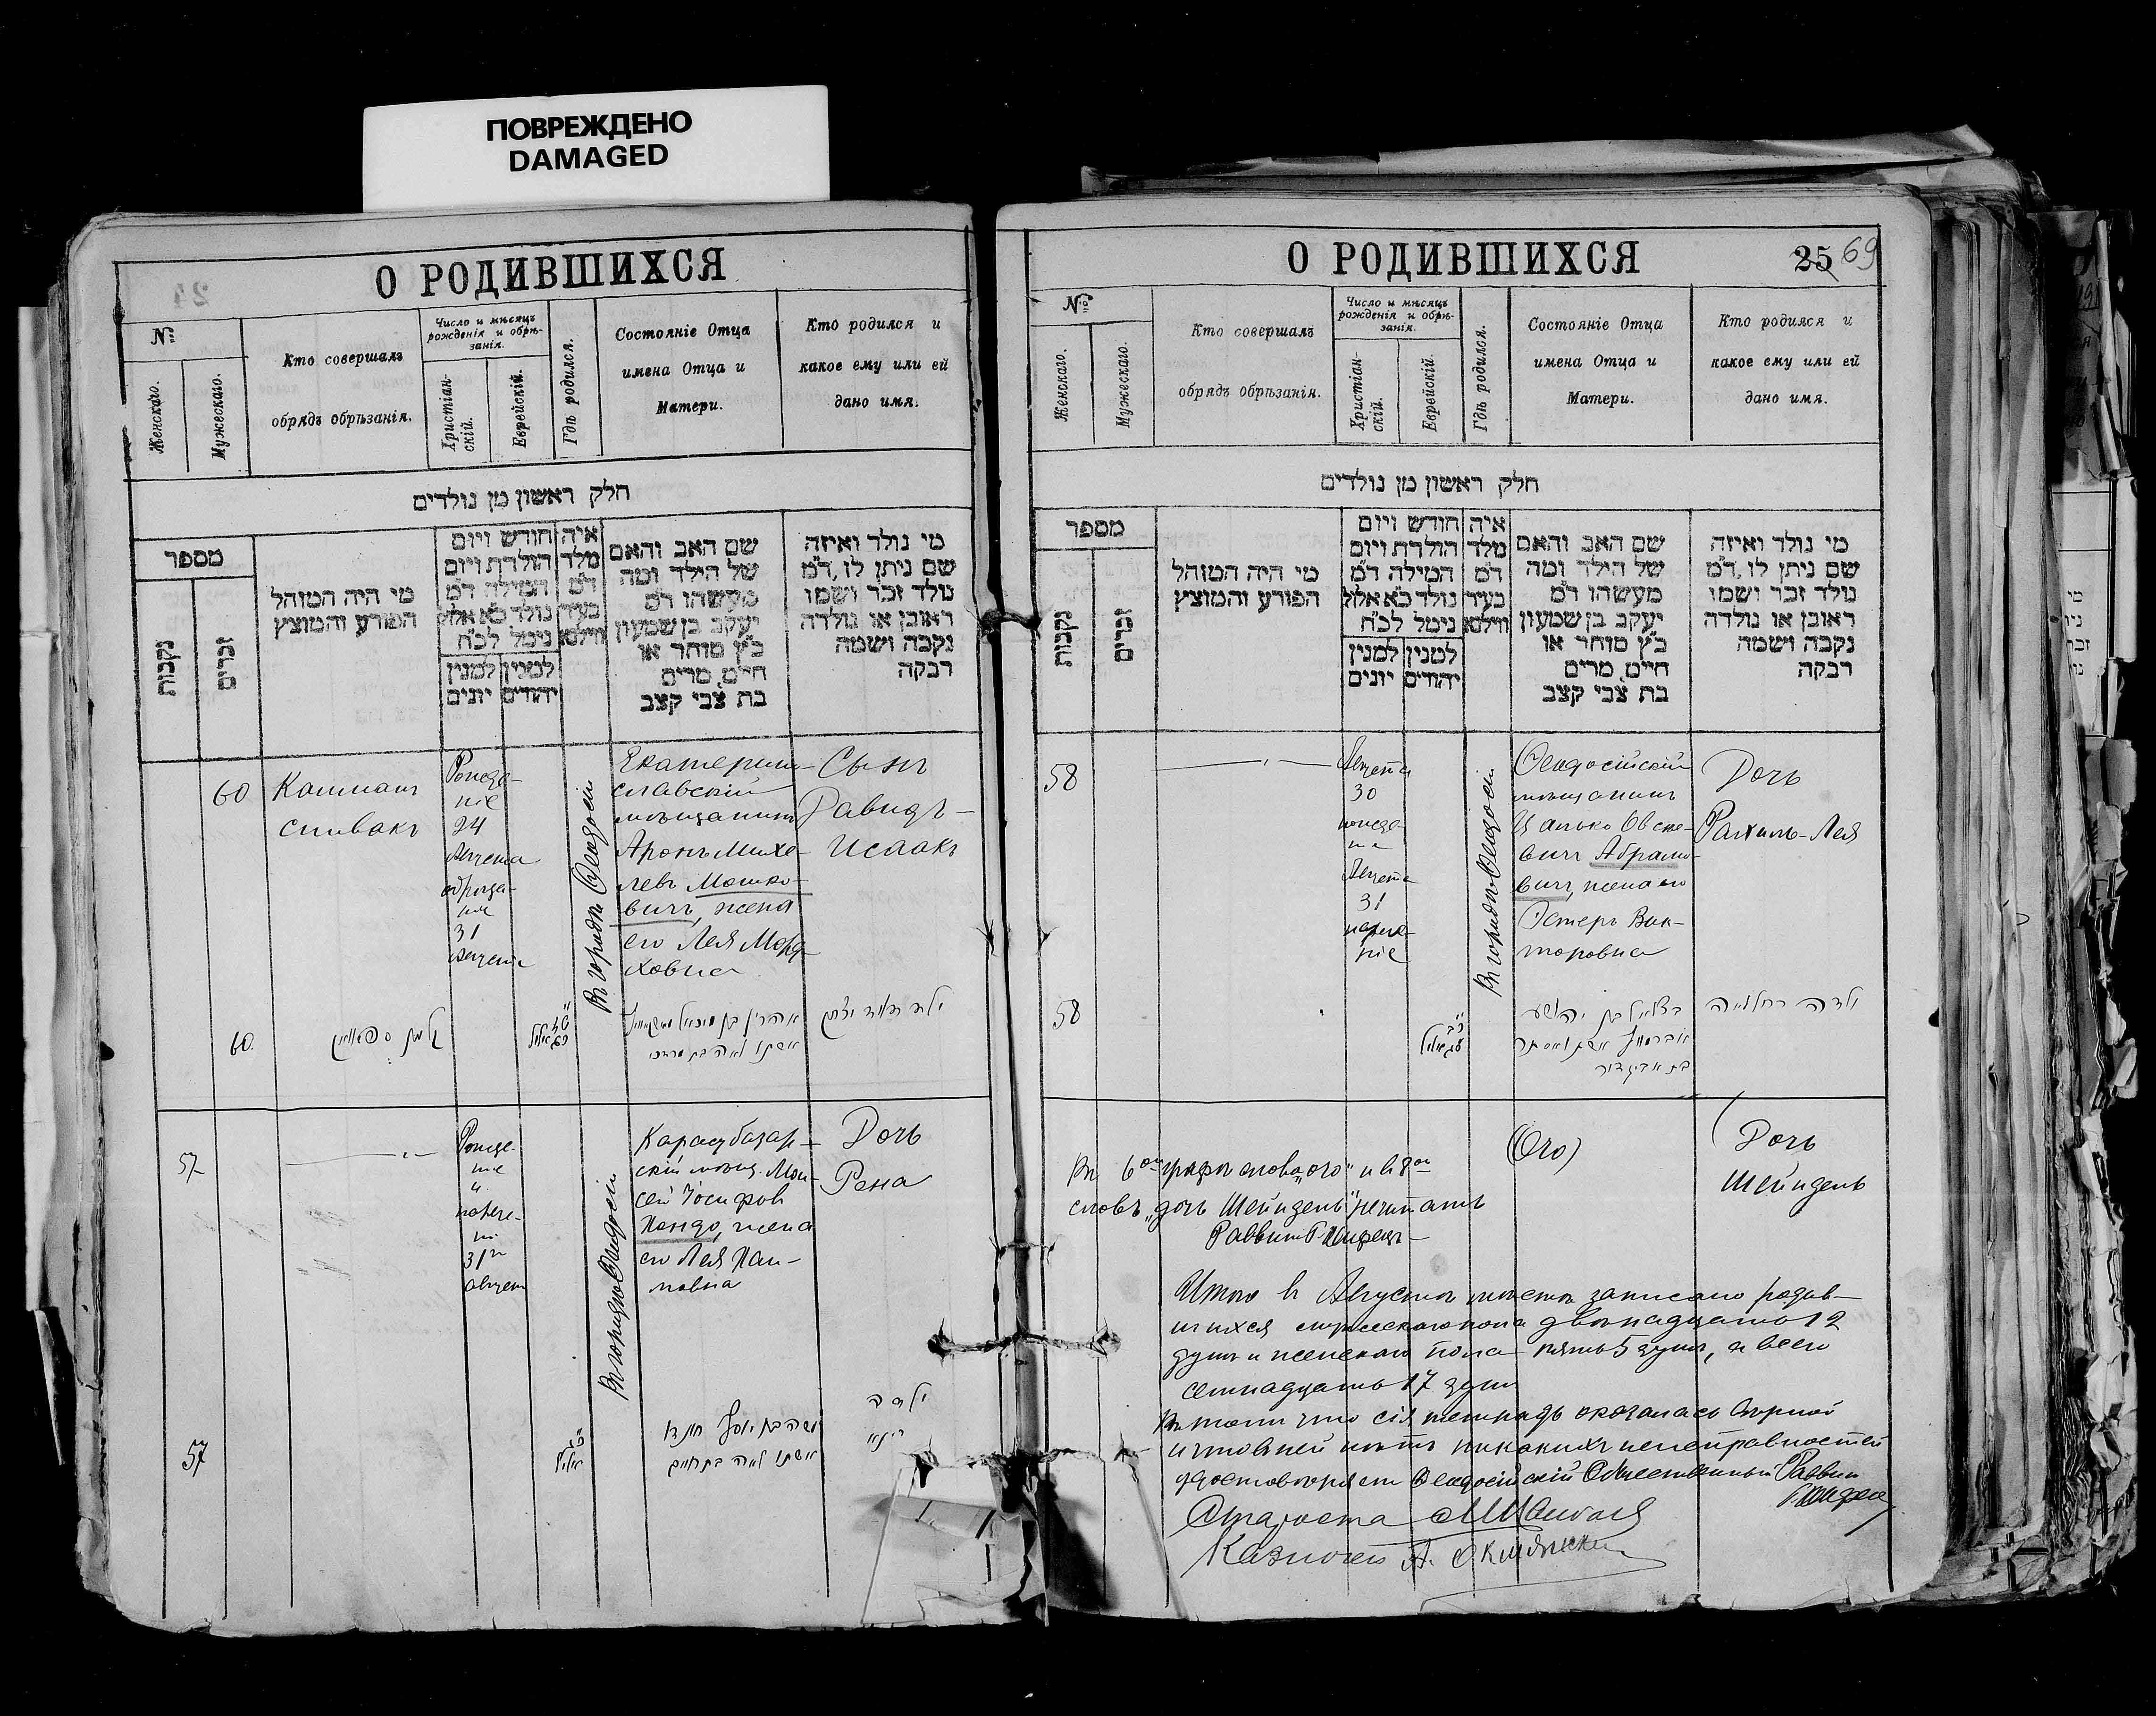 ПОВРЕЖДЕНО
DAMAGED
О РОДИВШИХСЯ
№
Женскаго.
Мужескаго.
Кто совершалъ
обрядъ обрѣзанія.
Число и мѣсяцъ
рожденія и обрѣ-
занія.
Христіан-
скій.
Еврейскій.
Гдѣ родился.
Состояніе Отца
имена Отца и
Матери.
Кто родился и
какое ему или ей
дано имя.
חלק ראשון מן נולדים
מספר
נקבות
זכרים
מי היה המוהל
הפורע והמוצץ
חודש ויום
הולדת ויום
המילה ד״מ
נולד כ׳א אלול
נימל לכ״ח
למנין למנין
יהודים יונים
איה
מלד
ד״מ
בעיר
ווילנא
שם האב והאם
של הילד ומה
מעשהו ד״מ
יעקב בן שמעון
כ״ץ סוחר או
חיים, מרים
בת צבי קצב
מי נולד ואיזה
שם ניתן לו, ד״מ
נולד זכר ושמו
ראובן או נולדה
נקבה ושמה
רבקה
60
Калманъ
Спивакъ
Рожде-
ніе
24
Августа
обрѣза-
ніе
31
Августа
Въ городѣ Ѳеодосіи
Екатерино-
славскій
мѣщанинъ
Аронъ Михе-
левъ Мошко-
вичъ, жена
его Лея Морд-
ховна
Сынъ
Давидъ-
Исаакъ
60.
אשתו לאה בת מרדכי
ילד דוד יצחק
57
Рожде-
ніе
и
нарече-
ніе
31го
Август
Въ городѣ Ѳеодосіи
Карасубазар-
скій мѣщ. Мои-
сей Іосифов
Хондо, жена
его Лея Хаи-
мовна
Дочь
Рена
57
אלול
משה בן יוסף חנדו
אשתו לאה בת חיים
ילדה
רינא
О РОДИВШИХСЯ
25 69
№
Женскаго.
Мужескаго.
Кто совершалъ
обрядъ обрѣзанія.
Число и мѣсяцъ
рожденія и обрѣ-
занія.
Христіан-
скій.
Еврейскій.
Гдѣ родился.
Состояніе Отца
имена Отца и
Матери.
Кто родился и
какое ему или ей
дано имя.
חלק ראשון מן נולדים
מספר
נקבות
זכרים
מי היה המוהל
הפורע והמוצץ
חודש ויום
הולדת ויום
המילה ד״מ
נולד כ׳א אלול
נימל לכ״ח
למנין למנין
יהודים יונים
איה
מלד
ד״מ
בעיר
ווילנא
שם האב והאם
של הילד ומה
מעשהו ד״מ
יעקב בן שמעון
כ״ץ סוחר או
חיים, מרים
בת צבי קצב
מי נולד ואיזה
שם ניתן לו, ד״מ
נולד זכר ושמו
ראובן או נולדה
נקבה ושמה
רבקה
58
Августа
30
рожде-
ніе
Августа
31
нарече-
ніе
Въ городѣ Ѳеодосіи
Ѳеодосійскій
мѣщанинъ
Абрамо-
вичъ, жена его
Эстеръ Вик-
торовна
Дочь
Рахиль-Лея
58
בצלאל בן יהושע
אברמוויץ אשתו אסתר
בת אביגדור
ילדה רחל לאה
(Ого)
Дочь
Шейндель
Въ 6ой графѣ слова „ого" и въ 8ой
словъ „дочь Шейндель" не читать
Раввинъ
Итого въ Августѣ мѣсяцѣ записано родив-
шихся мужескаго пола двѣнадцать 12
душъ и женскаго пола пять 5 душъ, а всего
семнадцать 17 душъ
Въ томъ что сія тетрадь оказалась вѣрной
и что въ ней нѣтъ никакихъ неисправностей
удостовѣряетъ Ѳеодосійскій Общественный Раввинъ
Староста
Казначей А.